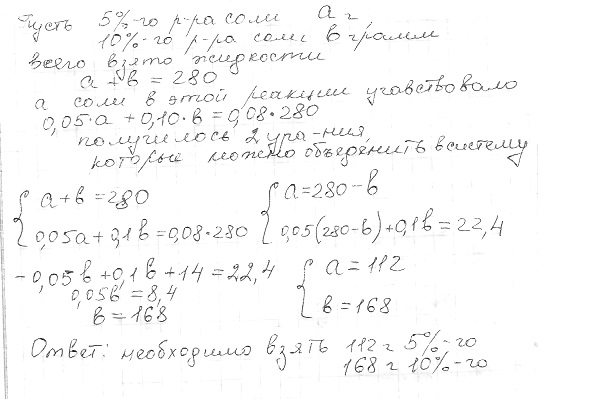 Пусть 5%-го р-ра соли a г,
10%-го р-ра соли в грамм
всего взято жидкости
a + в = 280
а соли в этой реакции учавствовало
0,05·a + 0,10·в = 0,08·280
получилось 2 ура-ния,
которые можно объеденить в систему
{ a + в = 280
0,05a + 0,1в = 0,08·280
{ a = 280 - в
0,05(280 - в) + 0,1в = 22,4
-0,05в + 0,1в + 14 = 22,4
0,05в = 8,4
в = 168
{ a = 112
в = 168
Ответ: необходимо взять 112 г 5%-го
168 г 10%-го